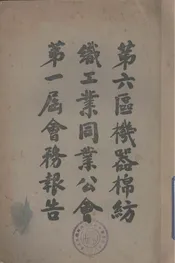 第六區機器棉紡
織工業同業公會
第一屆會務報告